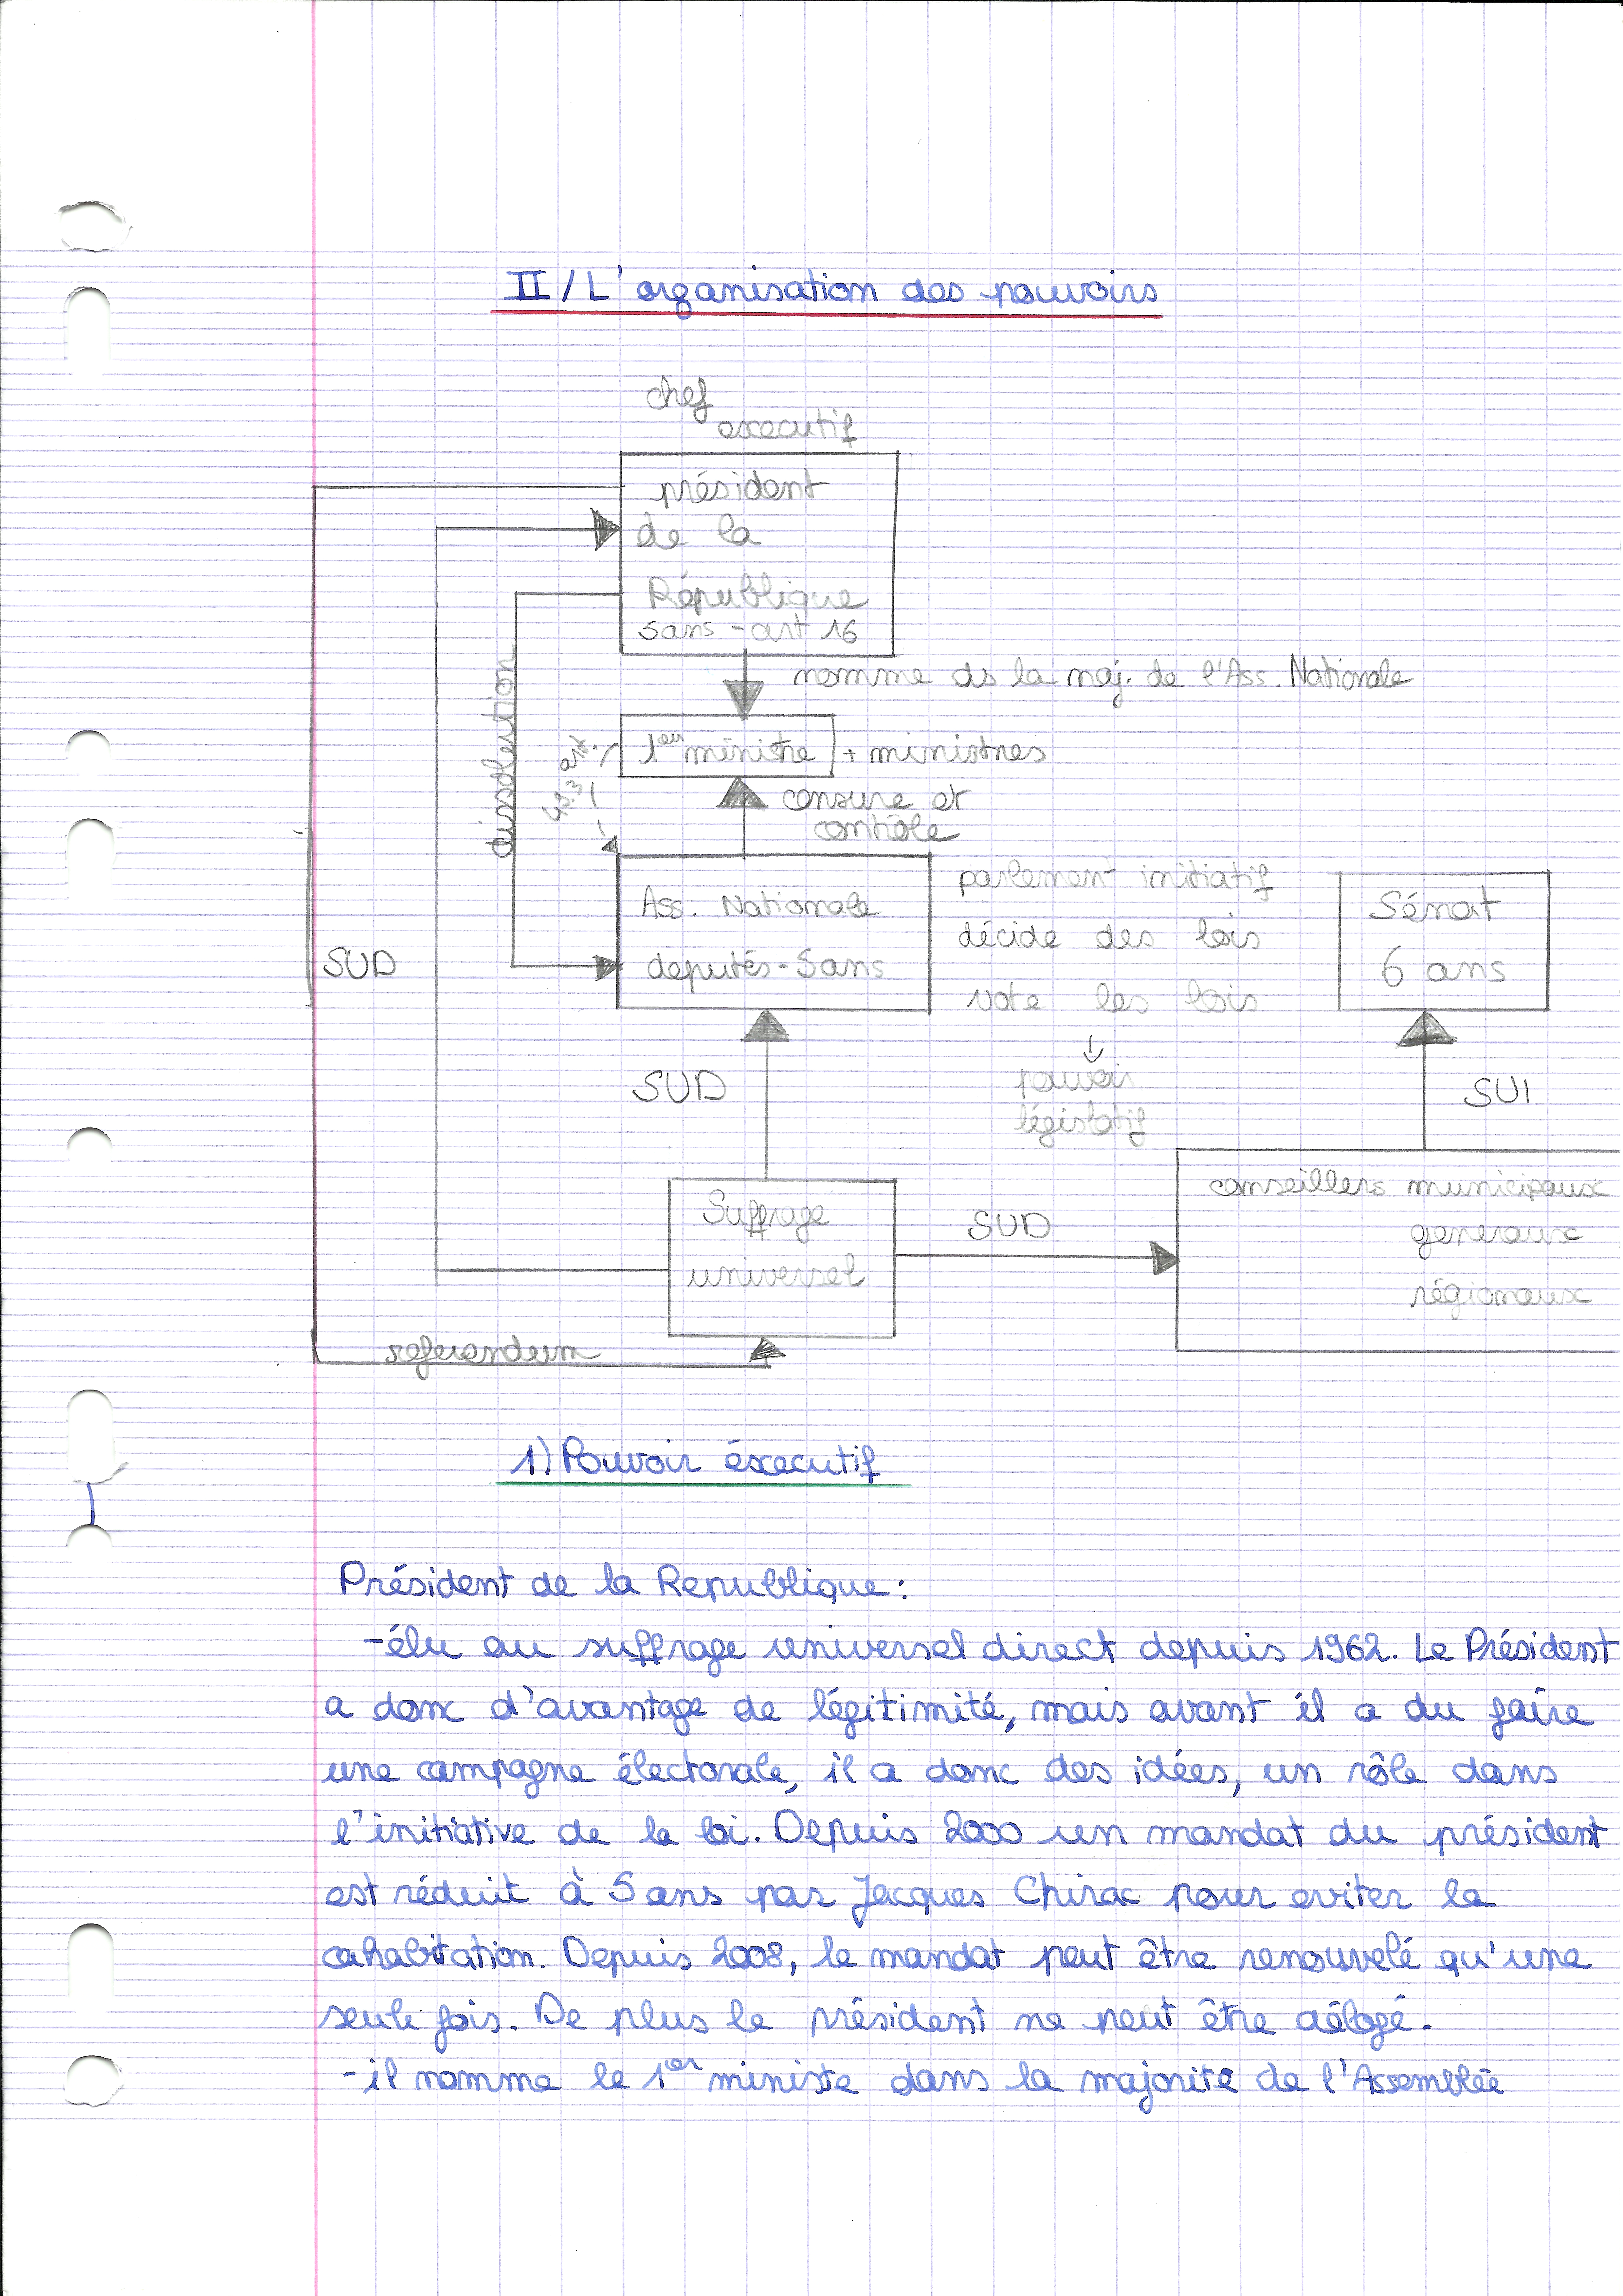 II / L'organisation des pouvoirs
chef
executif
président
de la
République
5ans - art 16
nomme ds la maj. de l'Ass. Nationale
dissolution
art.
49.3
1er ministre + ministres
censure et
contrôle
Ass. Nationale
deputés - 5ans
parlement initiatif
décide des lois
vote les lois
↓
pouvoir
législatif
Sénat
6 ans
SUD
SUD
SUI
Suffrage
universel
SUD
conseillers municipaux
generaux
régionaux
referendum
1) Pouvoir éxecutif
Président de la Republique :
- élu au suffrage universel direct depuis 1962. Le Président
a donc d'avantage de légitimité, mais avant il a du faire
une campagne électorale, il a donc des idées, un rôle dans
l'initiative de la loi. Depuis 2000 un mandat du président
est réduit à 5 ans par Jacques Chirac pour eviter la
cohabitation. Depuis 2008, le mandat peut être renouvelé qu'une
seule fois. De plus le président ne peut être délogé.
- il nomme le 1er ministe dans la majorité de l'Assemblée